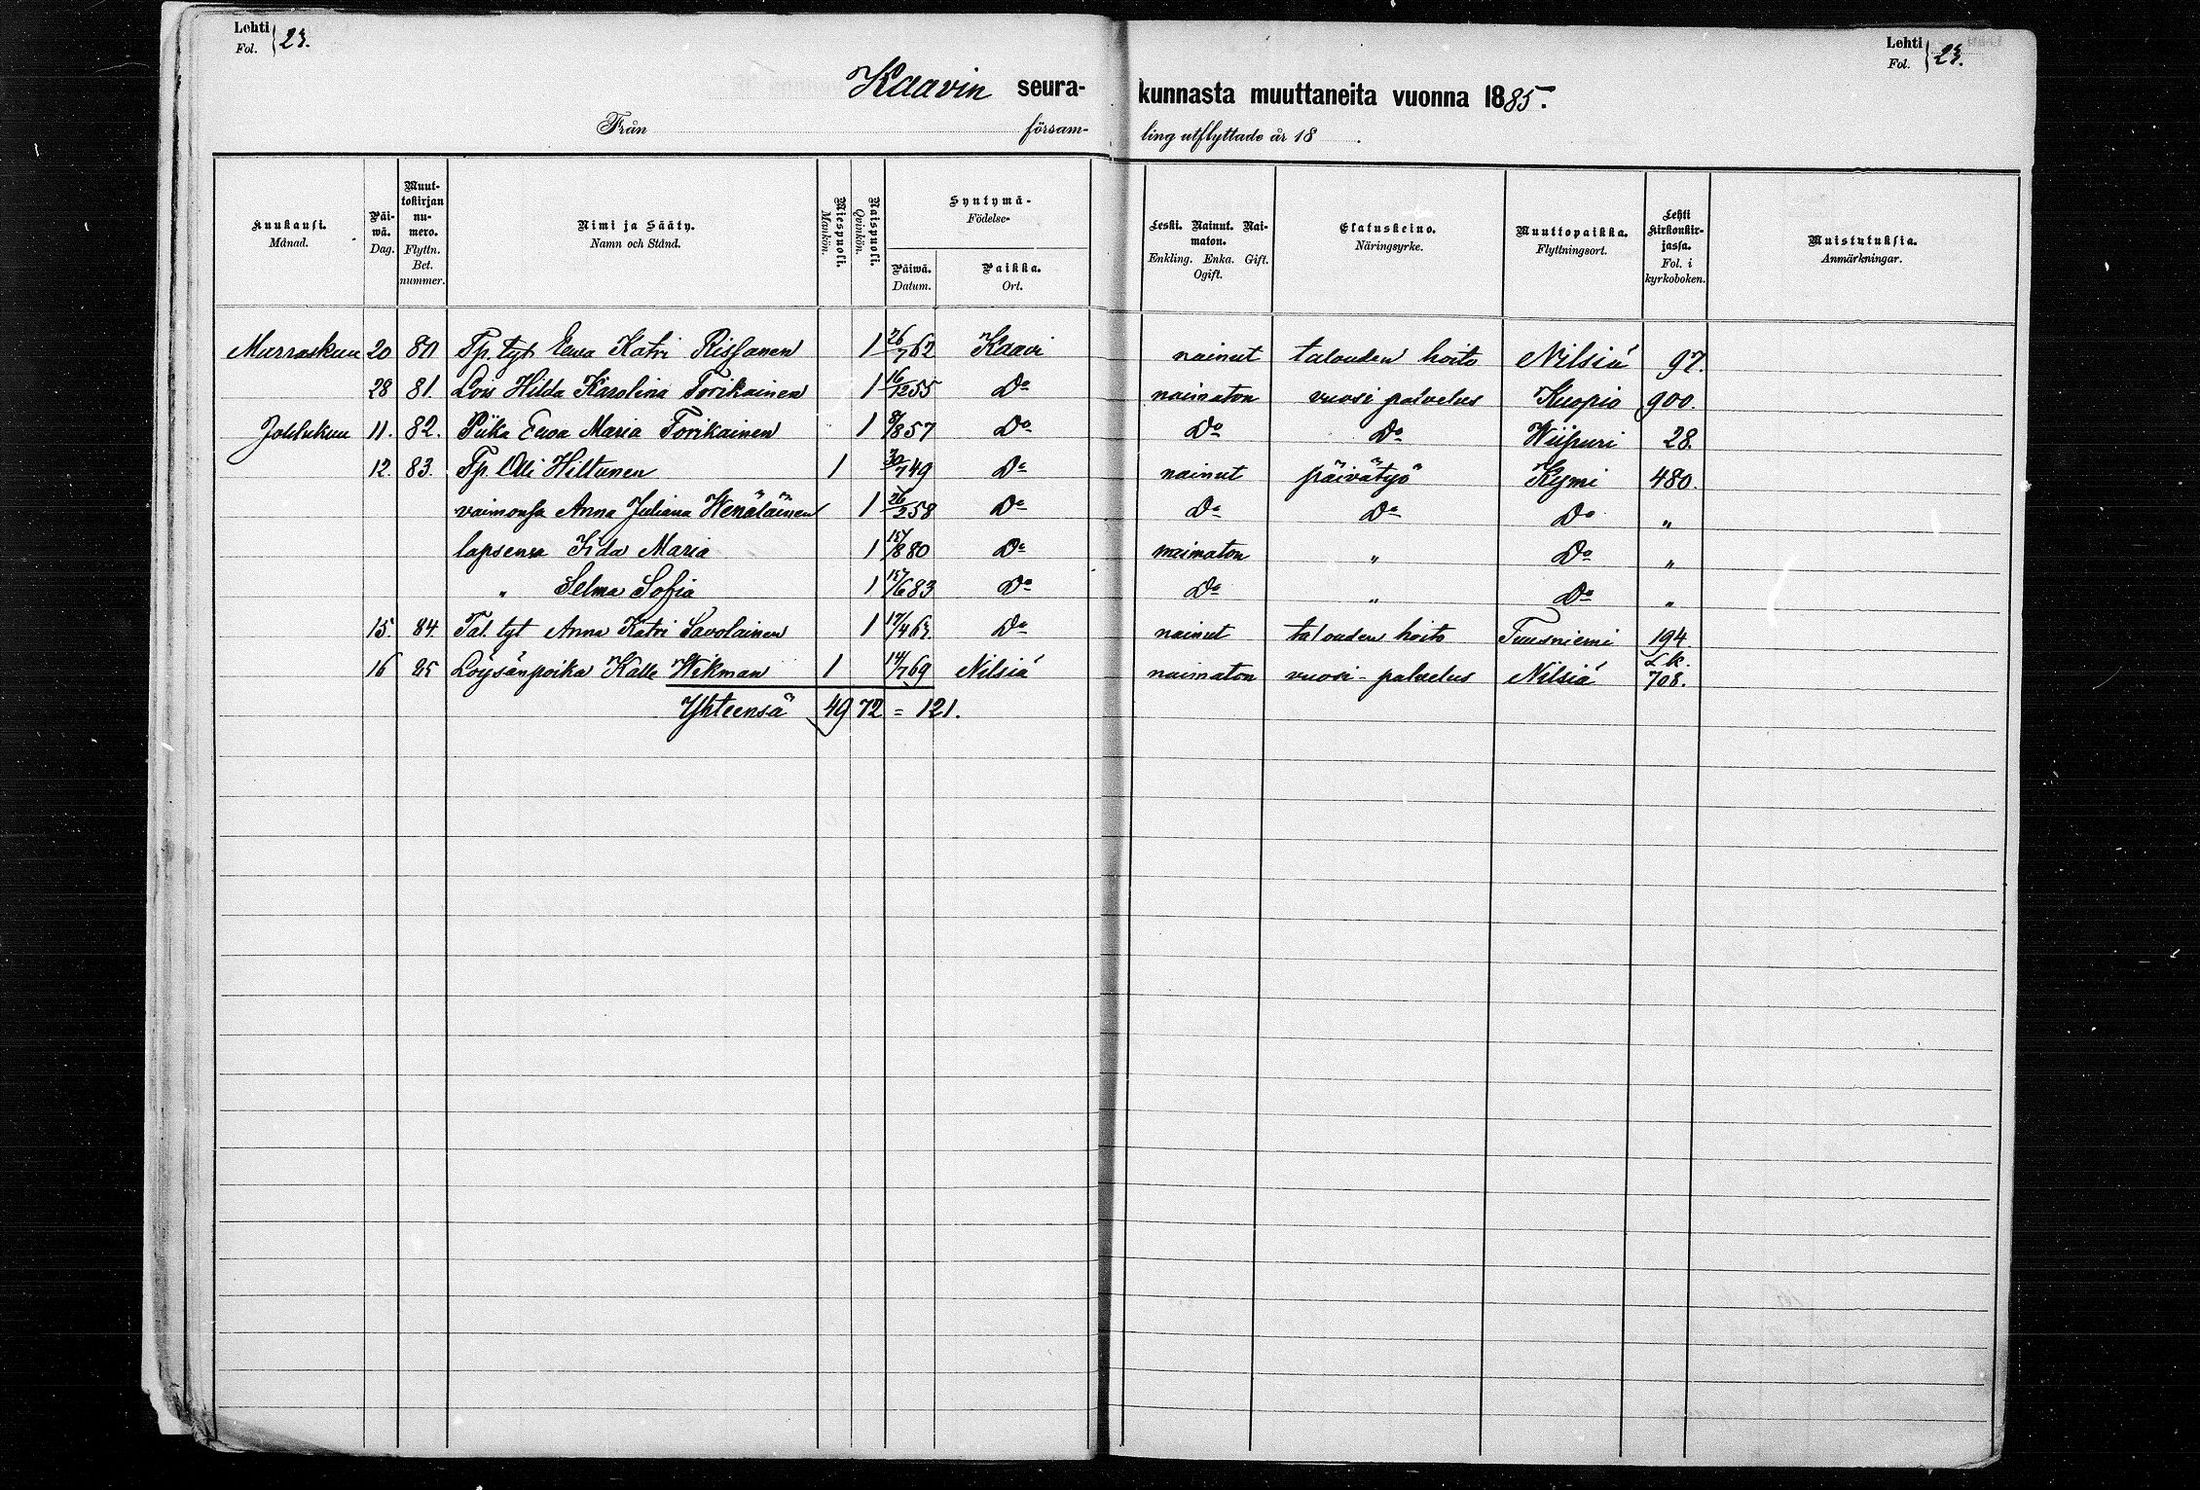 Lehti Fol. } 23.
Lehti Fol. } 23.
Kaavin seurakunnasta muuttaneita vuonna 1885.
Från församling utflyttade år 18 .
Kuukausi. Månad.
Päiwä. Dag.
Muuttokirjan numero. Flyttn. Bet. nummer.
Nimi ja Sääty. Namn och Stånd.
Miespuoli. Mankön.
Naispuoli. Qvinkön.
Syntymä- Födelse-
Päiwä. Datum.
Paikka. Ort.
Leski. Nainut. Naimaton. Enkling. Enka. Gift. Ogift.
Elatuskeino. Näringsyrke.
Muuttopaikka. Flyttningsort.
Lehti kirkonkirjassa. Fol. i kyrkoboken.
Muistutuksia. Anmärkningar.
Marraskuu 20 80 Tp. tyt Eeva Katri Rissanen 1 26/7 62 Kaavi nainut talouden hoito Nilsiä 97.
28 81. Lois Hilda Karolina Torikainen 1 16/12 55 Do naimaton vuosi palvelus Kuopio 900.
Joulukuu 11. 82. Piika Eeva Maria Torikainen 1 9/8 57 Do Do Do Wiipuri 28.
12. 83. Tp. Olli Hiltunen 1 30/7 49 Do nainut päivätyö Kymi 480.
vaimonsa Anna Juliana Wenäläinen 1 26/2 58 Do Do Do Do "
lapsensa Iida Maria 1 15/8 80 Do naimaton " Do "
" Selma Sofia 1 15/6 83 Do Do " Do "
15. 84. Tal. tyt Anna Katri Savolainen 1 17/4 63 Do nainut talouden hoito Tuusniemi 194.
16 85 Löysänpoika Kalle Wikman 1 14/7 69 Nilsiä naimaton vuosi-palvelus Nilsiä L.k. 708.
Yhteensä 49 72 = 121.